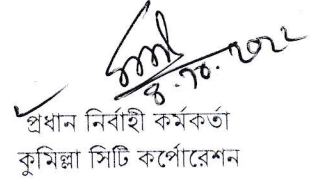 ৪.১০.২০২২
প্রধান নির্বাহী কর্মকর্তা
কুমিল্লা সিটি কর্পোরেশন